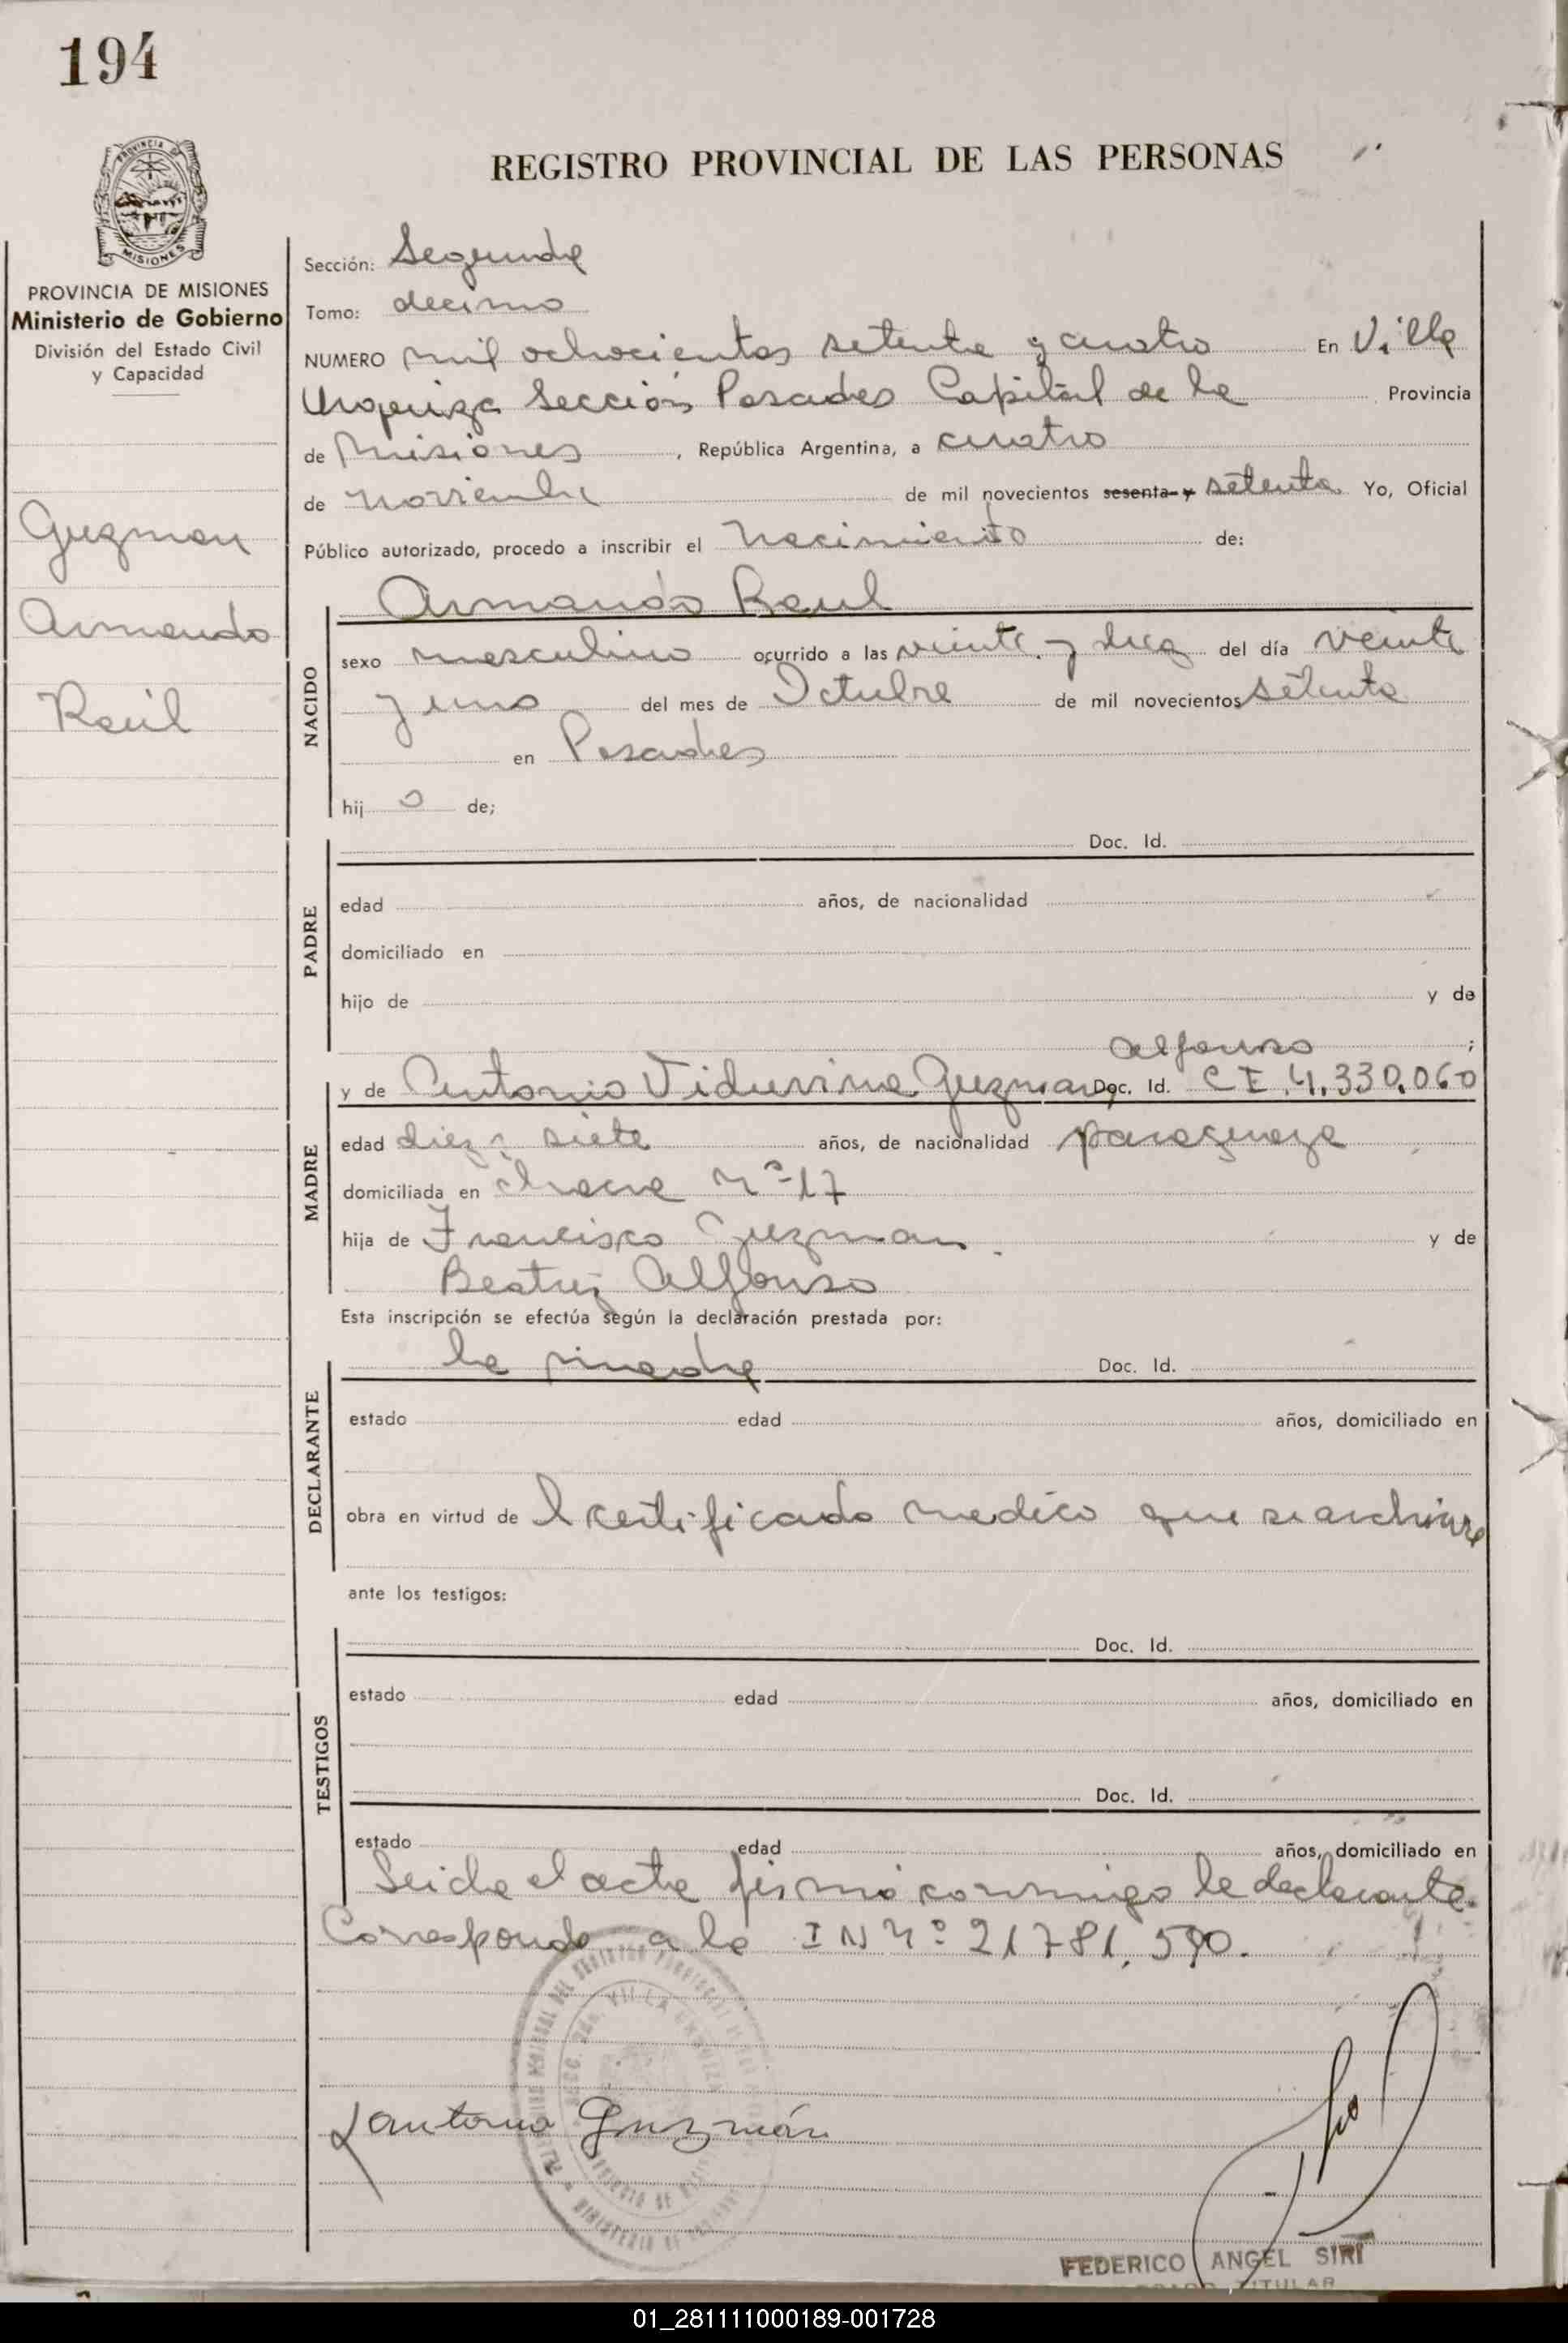 194
REGISTRO PROVINCIAL DE LAS PERSONAS
PROVINCIA DE MISIONES
MISIONES
PROVINCIA DE MISIONES
Ministerio de Gobierno
División del Estado Civil
y Capacidad
Guzman
Armando
Raúl
Sección: Segunda
Tomo: decimo
NUMERO mil ochocientos setenta y cuatro En Villa
Urquiza Sección Posadas Capital de la Provincia
de Misiones, República Argentina, a cuatro
de noviembre de mil novecientos sesenta y setenta Yo, Oficial
Público autorizado, procedo a inscribir el Nacimiento de:
Armando Raul
NACIDO
sexo masculino ocurrido a las veinte y diez del día veinte
y uno del mes de Octubre de mil novecientos setenta
en Posadas
hij o de;
PADRE
Doc. Id.
edad años, de nacionalidad
domiciliado en
hijo de y de
Alfonso ;
MADRE
y de Antonia Guzman, Doc. Id. C I 4.330.060
edad diez y siete años, de nacionalidad paraguaya
domiciliada en Chacra Nº 17
hija de Francisco Guzman. y de
Beatriz Alfonso
Esta inscripción se efectúa según la declaración prestada por:
DECLARANTE
la madre Doc. Id.
estado edad años, domiciliado en
obra en virtud de l certificado medico que se archiva
ante los testigos:
TESTIGOS
Doc. Id.
estado edad años, domiciliado en
Doc. Id.
estado edad años, domiciliado en
Leida el acta firmó conmigo la declarante.
Corresponde a la I N Nº 21781.590.
VILLA URQUIZA
Antonia Guzmán
FEDERICO ANGEL SIRI
TITULAR
01_281111000189-001728